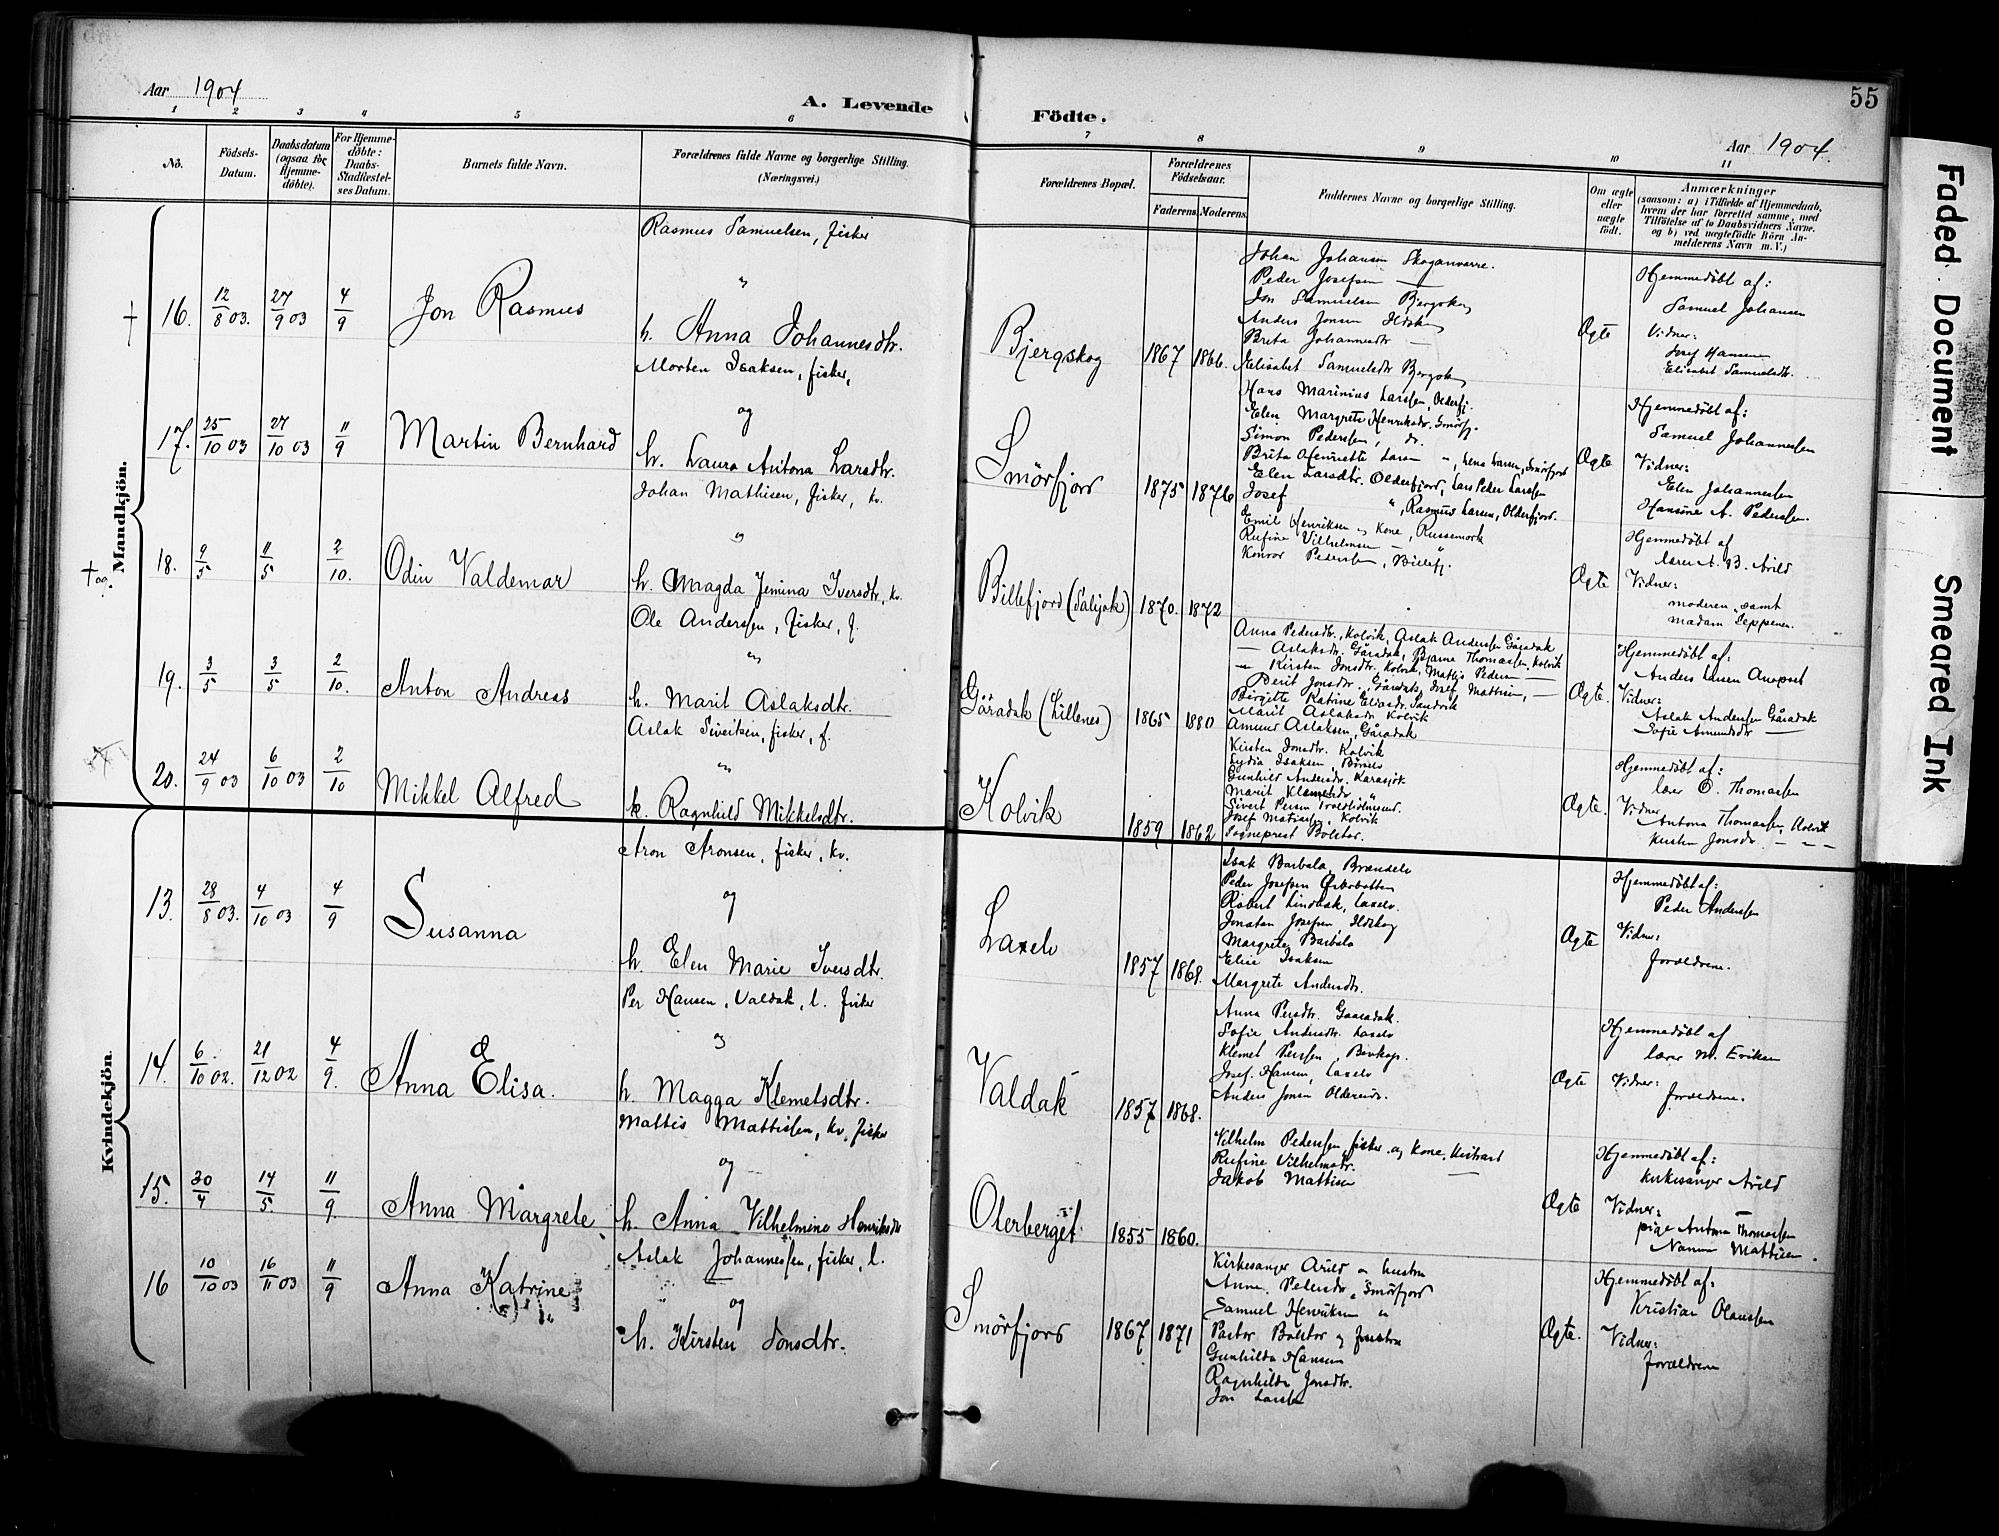 Aar 1904
A. Levende
1 2 3 4 5 6
No.
Födsels-
Datum.
Daabsdatum
(ogsaa for
Hjemme-
döbte).
For Hjemme-
döbte:
Daabs-
Stadfæstel-
ses Datum.
Barnets fulde Navn.
Forældrenes fulde Navne og borgerlige Stilling.
(Næringsvei.)
Mandkjön.
Rasmus Samuelsen, fisker
16. 12/8 03. 27/9 03 4/9 Jon Rasmus
h. Anna Johannesdtr.
Morten Isaksen, fisker,
og
17. 25/10 03 27/10 03 11/9 Martin Bernhard
h. Laura Antona Larsdtr.
Johan Mathisen, fisker, kv.
18. 9/5 11/5 2/10. Odin Valdemar
h. Magda Jemina Iversdtr, kv.
Ole Anderssen, fisker, f.
19. 3/5 3/5 2/10. Anton Andreas
h. Marit Aslaksdtr.
Aslak Sivertsen, fisker, f.
20. 24/9 03 6/10 03 2/10 Mikkel Alfred
h. Ragnhild Mikkelsdtr.
Kvindekjön.
Aron Aronsen, fisker, kv.
13. 28/8 03. 4/10 03 4/9 Susanna
og
h. Elen Marie Iversdtr.
Per Hansen, Valdak, l. fisker
14. 6/10 02. 21/12 02 4/9. Anna Elisa.
h. Magga Klemetsdtr.
Mattis Mattissen, kv. fisker
og
15. 30/4 14/5 11/9. Anna Margrete
h. Anna Vilhelmine Henriksdtr
Aslak Johannessen, fisker, l.
16 10/10 03 16/11 03 11/9 Anna Katrine
og
h. Kirsten Jonsdtr.
Födte.
55
Aar 1904.
7 8 9 10 11
Forældrenes Bopæl.
Forældrenes
Födselsaar.
Faderens. Moderens.
Faddernes Navne og borgerlige Stilling.
Om ægte
eller
uægte
födt.
Anmærkninger
(saasom: a) i Tilfælde af Hjemmedaab,
hvem der har forrettet samme, med
Tilföielse af to Daabsvidners Navne.
og b) ved uægtefödte Börn An-
melderens Navn m. V.)
Bjergskog 1867 1866.
Johan Johansen Skoganvarre.
Peder Josefsen —
Jon Samuelsen Bergskog
Anders Jonsen Ildskog
Brita Johannesdtr —
Elisabet Samuelsdtr Bergskog
Ægte
Hjemmedöbt af:
Samuel Johansen
Vidner:
Josef Hansen
Elisabet Samuelsdtr.
Smörfjord 1875 1876
Hans Marinius Larssen, Olderfj.
Elen Margrete Henriksdtr. Smörfj.
Simon Pederssen, do.
Brita Henriette Larsen
Elen Larsdtr. Olderfjord, Lars Peder Larssen
Josef ", Rasmus Larsen, Olderfjord.
Ægte
Hjemmedöbt af:
Samuel Johannessen
Vidner:
Elen Johannessen
Hansine A. Pederssen.
Billefjord (Salijok) 1870. 1872
Emil Henriksen og Kone, Russemark
Rufine Vilhelmsen — "
Konrad Pedersen, Billefj.
Ægte
Hjemmedöbt af
lærer A. B. Arild
Vidner:
moderen, samt
madam Seppenen.
Gåradak (Lillenes) 1865 1880
Anna Pedersdtr., Kolvik, Aslak Anderssen Gåradak
— Aslaksdtr. Gåradak, Bjarne Thomassen, Kolvik
— Kirsten Jonsdtr. Kolvik, Mattis Pedersen —
Berit Jonsdtr. Gåradak, Josef Mattisen, —
Birgitte Katrine Eliasdtr. Sandvik
Marit Aslaksdtr Kolvik
Amund Aslaksen, Gåradak
Ægte.
Hjemmedöbt af:
Anders Larsen
Vidner:
Aslak Anderssen Gåradak
Sofie Amundsdtr —
Kolvik 1859 1862
Kirsten Jonsdtr. Kolvik
Lydia Isaksen, Börselv
Gunhild Andersdtr. Karasjok
Marit Klemetsdtr "
Josef Matissen, Kolvik
Sogneprest Bolstad.
Ægte.
Hjemmedöbt af:
lærer O. Thomassen
Vidner
Antona Thomassen, Kolvik
Kirsten Jonsdtr. — " —
Laxelv 1857 1868.
Isak Barbala, Brændelv
Peder Josefsen Österbotten
Robert Lindbak, Laxelv.
Jonatan Josefsen, Ildskog
Margrete Barbala
Elise Isaksen
Margrete Andersdtr.
Ægte
Hjemmedöbt af:
Peder Anderssen
Vidner:
forældrene.
Valdak 1857 1868.
Anna Persdtr. Gaaradak.
Sofie Andersdtr. Laxelv
Klemet Perssen,
Josef Hansen, Laxelv
Anders Jonsen
Ægte
Hjemmedöbt af
lærer M. Eriksen
Vidner:
forældrene.
Oterberget 1855 1860.
Vilhelm Pederssen, fisker og Kone, Kistrand
Rufine Vilhelmsdtr. —
Jakob Mattisen
Ægte
Hjemmedöbt af:
kirkesanger Arild
Vidner:
pige Antona Thomassen
Nanna Mattisen.
Smörfjord 1867 1871
Kirkesanger Arild og hustru
Anne Pedersdtr, Smörfjord
Samuel Henriksen "
Pastor Bolstad og frue
Gunhilda Hansen
Ragnhilda Jonsdtr.
Jon Larssen
Ægte.
Hjemmedöbt af:
Kristian Olaussen
Vidner:
forældrene
Faded Document
Smeared Ink